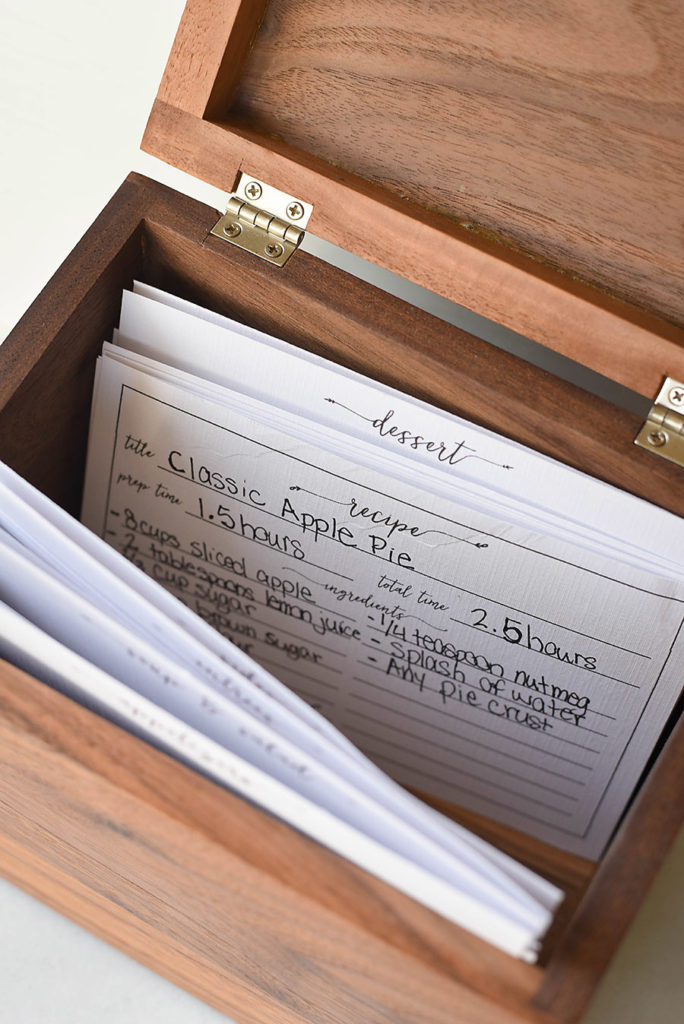 dessert
recipe
title Classic Apple Pie
prep time 1.5 hours
total time 2.5 hours
ingredients
- 8 cups sliced apple
- 2 tablespoons lemon juice
cup sugar
brown sugar
- 1/4 teaspoon nutmeg
- Splash of water
- Any pie crust
soup & salad
appetizers